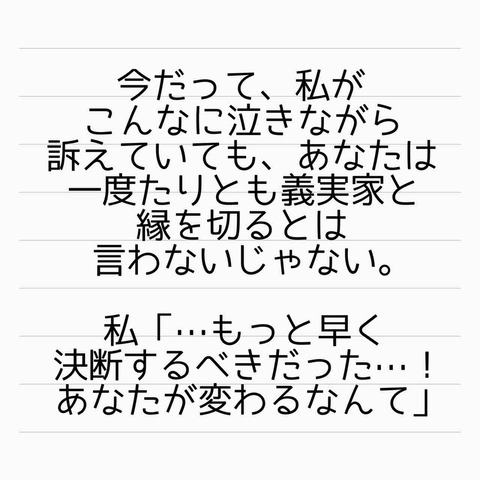 今だって、私が
こんなに泣きながら
訴えていても、あなたは
一度たりとも義実家と
縁を切るとは
言わないじゃない。
私「…もっと早く
決断するべきだった…！
あなたが変わるなんて」